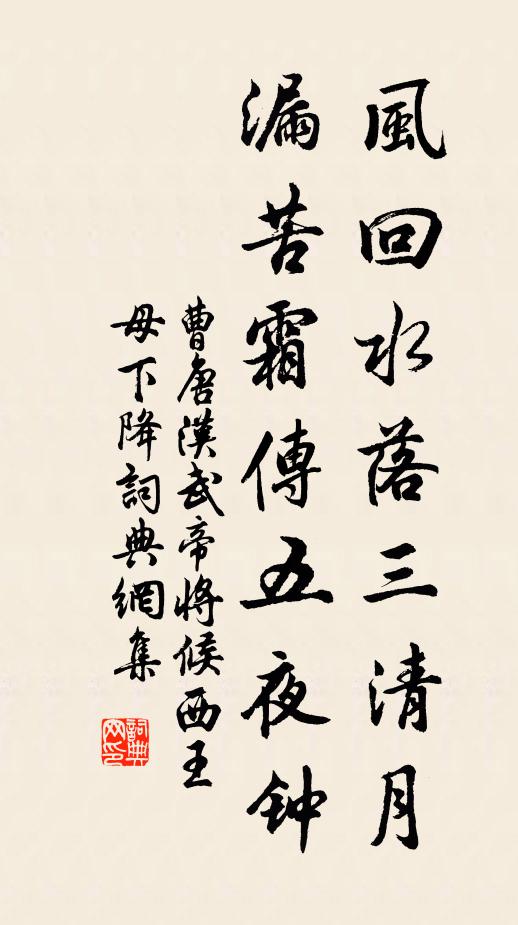 風回水落三清月
漏苦霜傳五夜钟
曹唐漢武帝將候西王
母下降詞典網集
詞典
网印